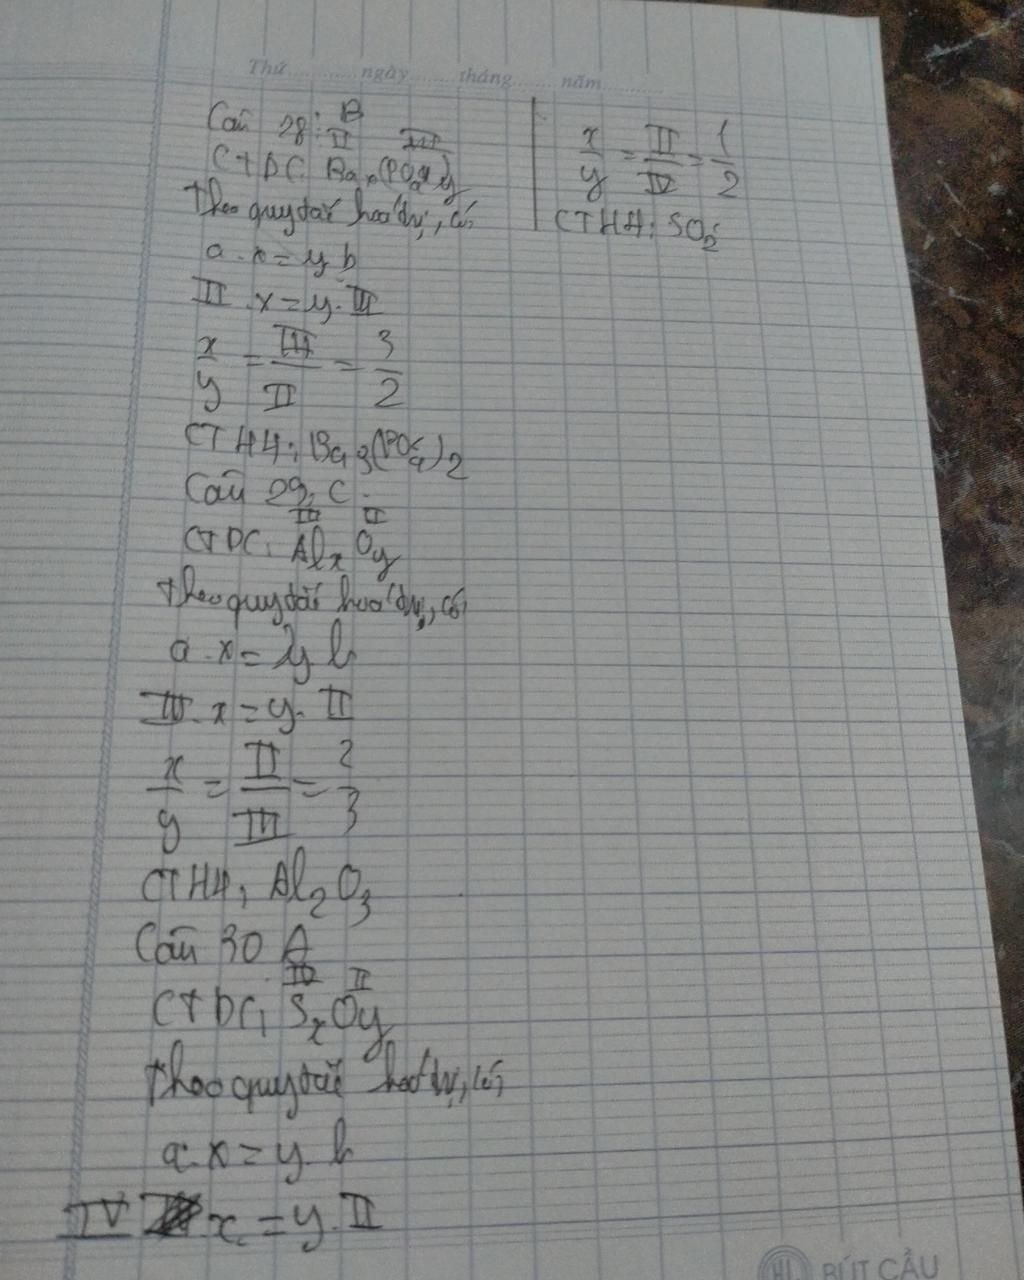 Thứ ngày tháng năm
Câu 28: B
II III
CTDC: Bax(PO4)y
Theo quy tắc hoá trị, có:
a.x = y b
II.x = y.III
x/y = III/II = 3/2
CTHH: Ba3(PO4)2
Câu 29: C
III II
CTDC: AlxOy
Theo quy tắc hoá trị, có:
a.x = y b
III.x = y.II
x/y = II/III = 2/3
CTHH: Al2O3
Câu 30 A
IV II
CTDC: SxOy
Theo quy tắc hoá trị, có:
a.x = y.b
IV x = y.II
x/y = II/IV = 1/2
CTHH: SO2
HL BÚT CẢU